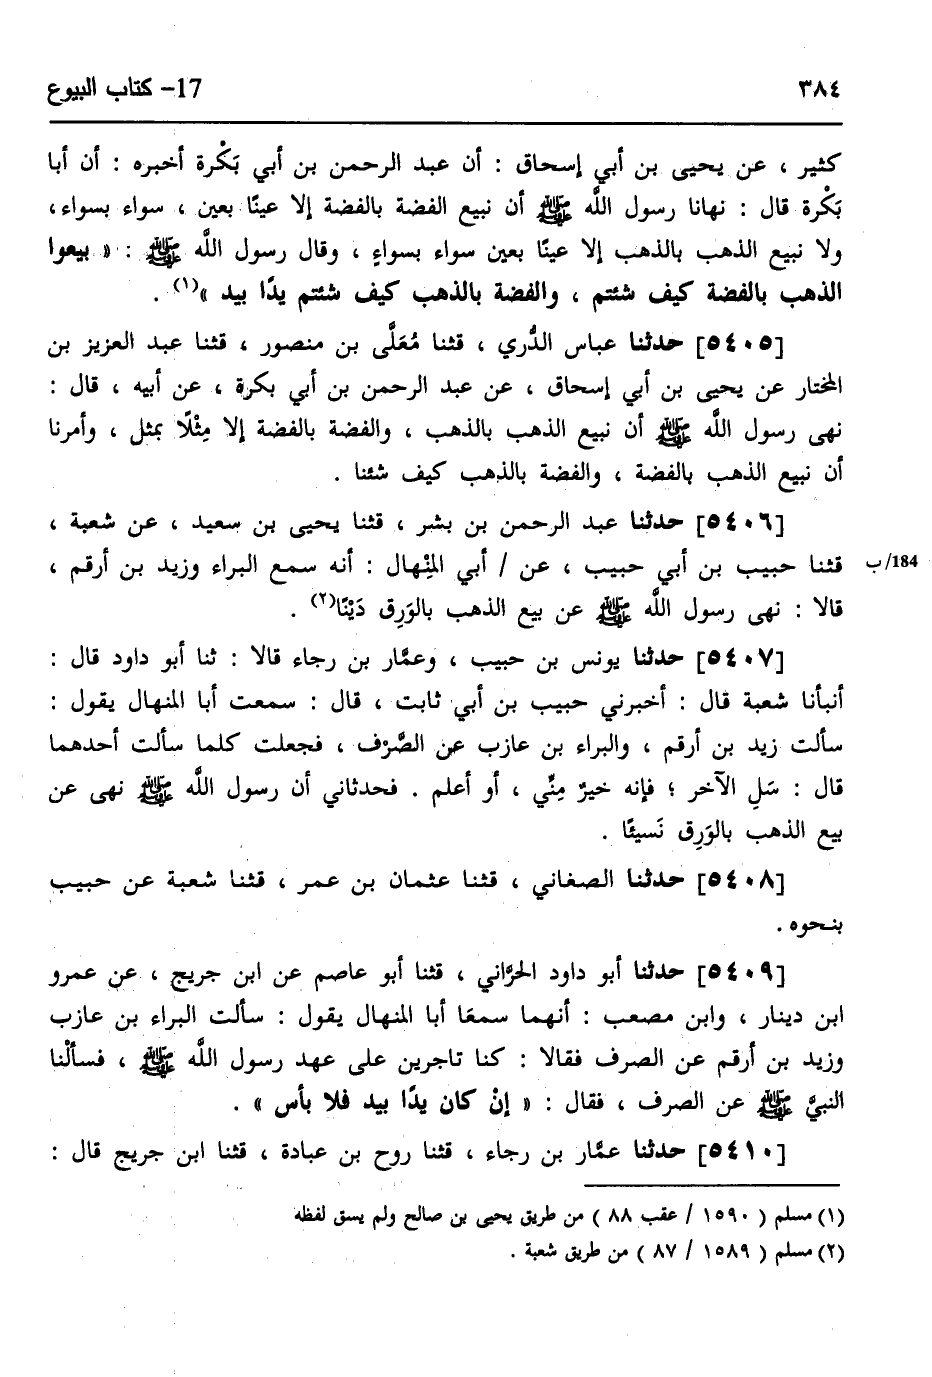 ٣٨٤
17- كتاب البيوع
كثير ، عن يحيى بن أبي إسحاق : أن عبد الرحمن بن أبي بَكْرة أخبره : أن أبا
بَكْرة قال : نهانا رسول اللَّه ﷺ أن نبيع الفضة بالفضة إلا عينًا بعين ، سواء بسواء،
ولا نبيع الذهب بالذهب إلا عينًا بعين سواء بسواءٍ ، وقال رسول اللَّه ﷺ : « بيعوا
الذهب بالفضة كيف شئتم ، والفضة بالذهب كيف شئتم يدًا بيد »(١) .
[٥٤٠٥] حدثنا عباس الدُّري ، قثنا مُعَلَّى بن منصور ، قثنا عبد العزيز بن
المختار عن يحيى بن أبي إسحاق ، عن عبد الرحمن بن أبي بكرة ، عن أبيه ، قال :
نهى رسول اللَّه ﷺ أن نبيع الذهب بالذهب ، والفضة بالفضة إلا مِثْلًا بمثل ، وأمرنا
أن نبيع الذهب بالفضة ، والفضة بالذهب كيف شئنا .
[٥٤٠٦] حدثنا عبد الرحمن بن بشر ، قثنا يحيى بن سعيد ، عن شعبة ،
قثنا حبيب بن أبي حبيب ، عن / أبي المِنْهال : أنه سمع البراء وزيد بن أرقم ،
184/ب
قالا : نهى رسول اللَّه ﷺ عن بيع الذهب بالوَرِق دَيْنًا(٢) .
[٥٤٠٧] حدثنا يونس بن حبيب ، وعمَّار بن رجاء قالا : ثنا أبو داود قال :
أنبأنا شعبة قال : أخبرني حبيب بن أبي ثابت ، قال : سمعت أبا المنهال يقول :
سألت زيد بن أرقم ، والبراء بن عازب عن الصَّرْف ، فجعلت كلما سألت أحدهما
قال : سَلِ الآخر ؛ فإنه خيرٌ مِنِّي ، أو أعلم . فحدثاني أن رسول اللَّه ﷺ نهى عن
بيع الذهب بالوَرِق نَسيئًا .
[٥٤٠٨] حدثنا الصغاني ، قثنا عثمان بن عمر ، قثنا شعبة عن حبيب
بنحوه .
[٥٤٠٩] حدثنا أبو داود الحرَّاني ، قثنا أبو عاصم عن ابن جريج ، عن عمرو
ابن دينار ، وابن مصعب : أنهما سمعَا أبا المنهال يقول : سألت البراء بن عازب
وزيد بن أرقم عن الصرف فقالا : كنا تاجرين على عهد رسول اللَّه ﷺ ، فسألْنا
النبيَّ ﷺ عن الصرف ، فقال : « إنْ كان يدًا بيد فلا بأس » .
[٥٤١٠] حدثنا عمَّار بن رجاء ، قثنا روح بن عبادة ، قثنا ابن جريج قال :
(١) مسلم ( ١٥٩٠ / عقب ٨٨ ) من طريق يحيى بن صالح ولم يسق لفظه
(٢) مسلم ( ١٥٨٩ / ٨٧ ) من طريق شعبة .